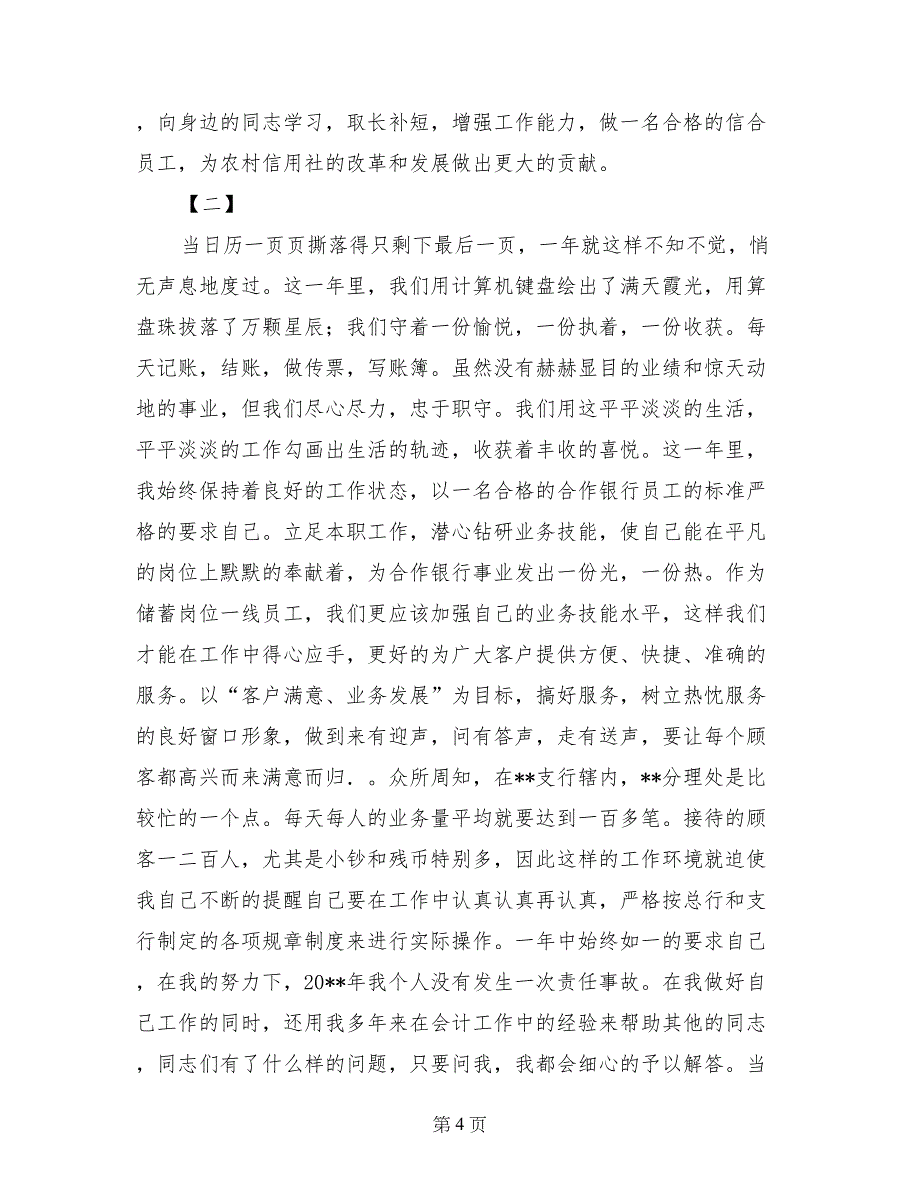 ，向身边的同志学习，取长补短，增强工作能力，做一名合格的信合
员工，为农村信用社的改革和发展做出更大的贡献。
【二】
当日历一页页撕落得只剩下最后一页，一年就这样不知不觉，悄
无声息地度过。这一年里，我们用计算机键盘绘出了满天霞光，用算
盘珠拔落了万颗星辰；我们守着一份愉悦，一份执着，一份收获。每
天记账，结账，做传票，写账簿。虽然没有赫赫显目的业绩和惊天动
地的事业，但我们尽心尽力，忠于职守。我们用这平平淡淡的生活，
平平淡淡的工作勾画出生活的轨迹，收获着丰收的喜悦。这一年里，
我始终保持着良好的工作状态，以一名合格的合作银行员工的标准严
格的要求自己。立足本职工作，潜心钻研业务技能，使自己能在平凡
的岗位上默默的奉献着，为合作银行事业发出一份光，一份热。作为
储蓄岗位一线员工，我们更应该加强自己的业务技能水平，这样我们
才能在工作中得心应手，更好的为广大客户提供方便、快捷、准确的
服务。以“客户满意、业务发展”为目标，搞好服务，树立热忱服务
的良好窗口形象，做到来有迎声，问有答声，走有送声，要让每个顾
客都高兴而来满意而归．。众所周知，在**支行辖内，**分理处是比
较忙的一个点。每天每人的业务量平均就要达到一百多笔。接待的顾
客一二百人，尤其是小钞和残币特别多，因此这样的工作环境就迫使
我自己不断的提醒自己要在工作中认真认真再认真，严格按总行和支
行制定的各项规章制度来进行实际操作。一年中始终如一的要求自己
，在我的努力下，20**年我个人没有发生一次责任事故。在我做好自
己工作的同时，还用我多年来在会计工作中的经验来帮助其他的同志
，同志们有了什么样的问题，只要问我，我都会细心的予以解答。当
第 4 页